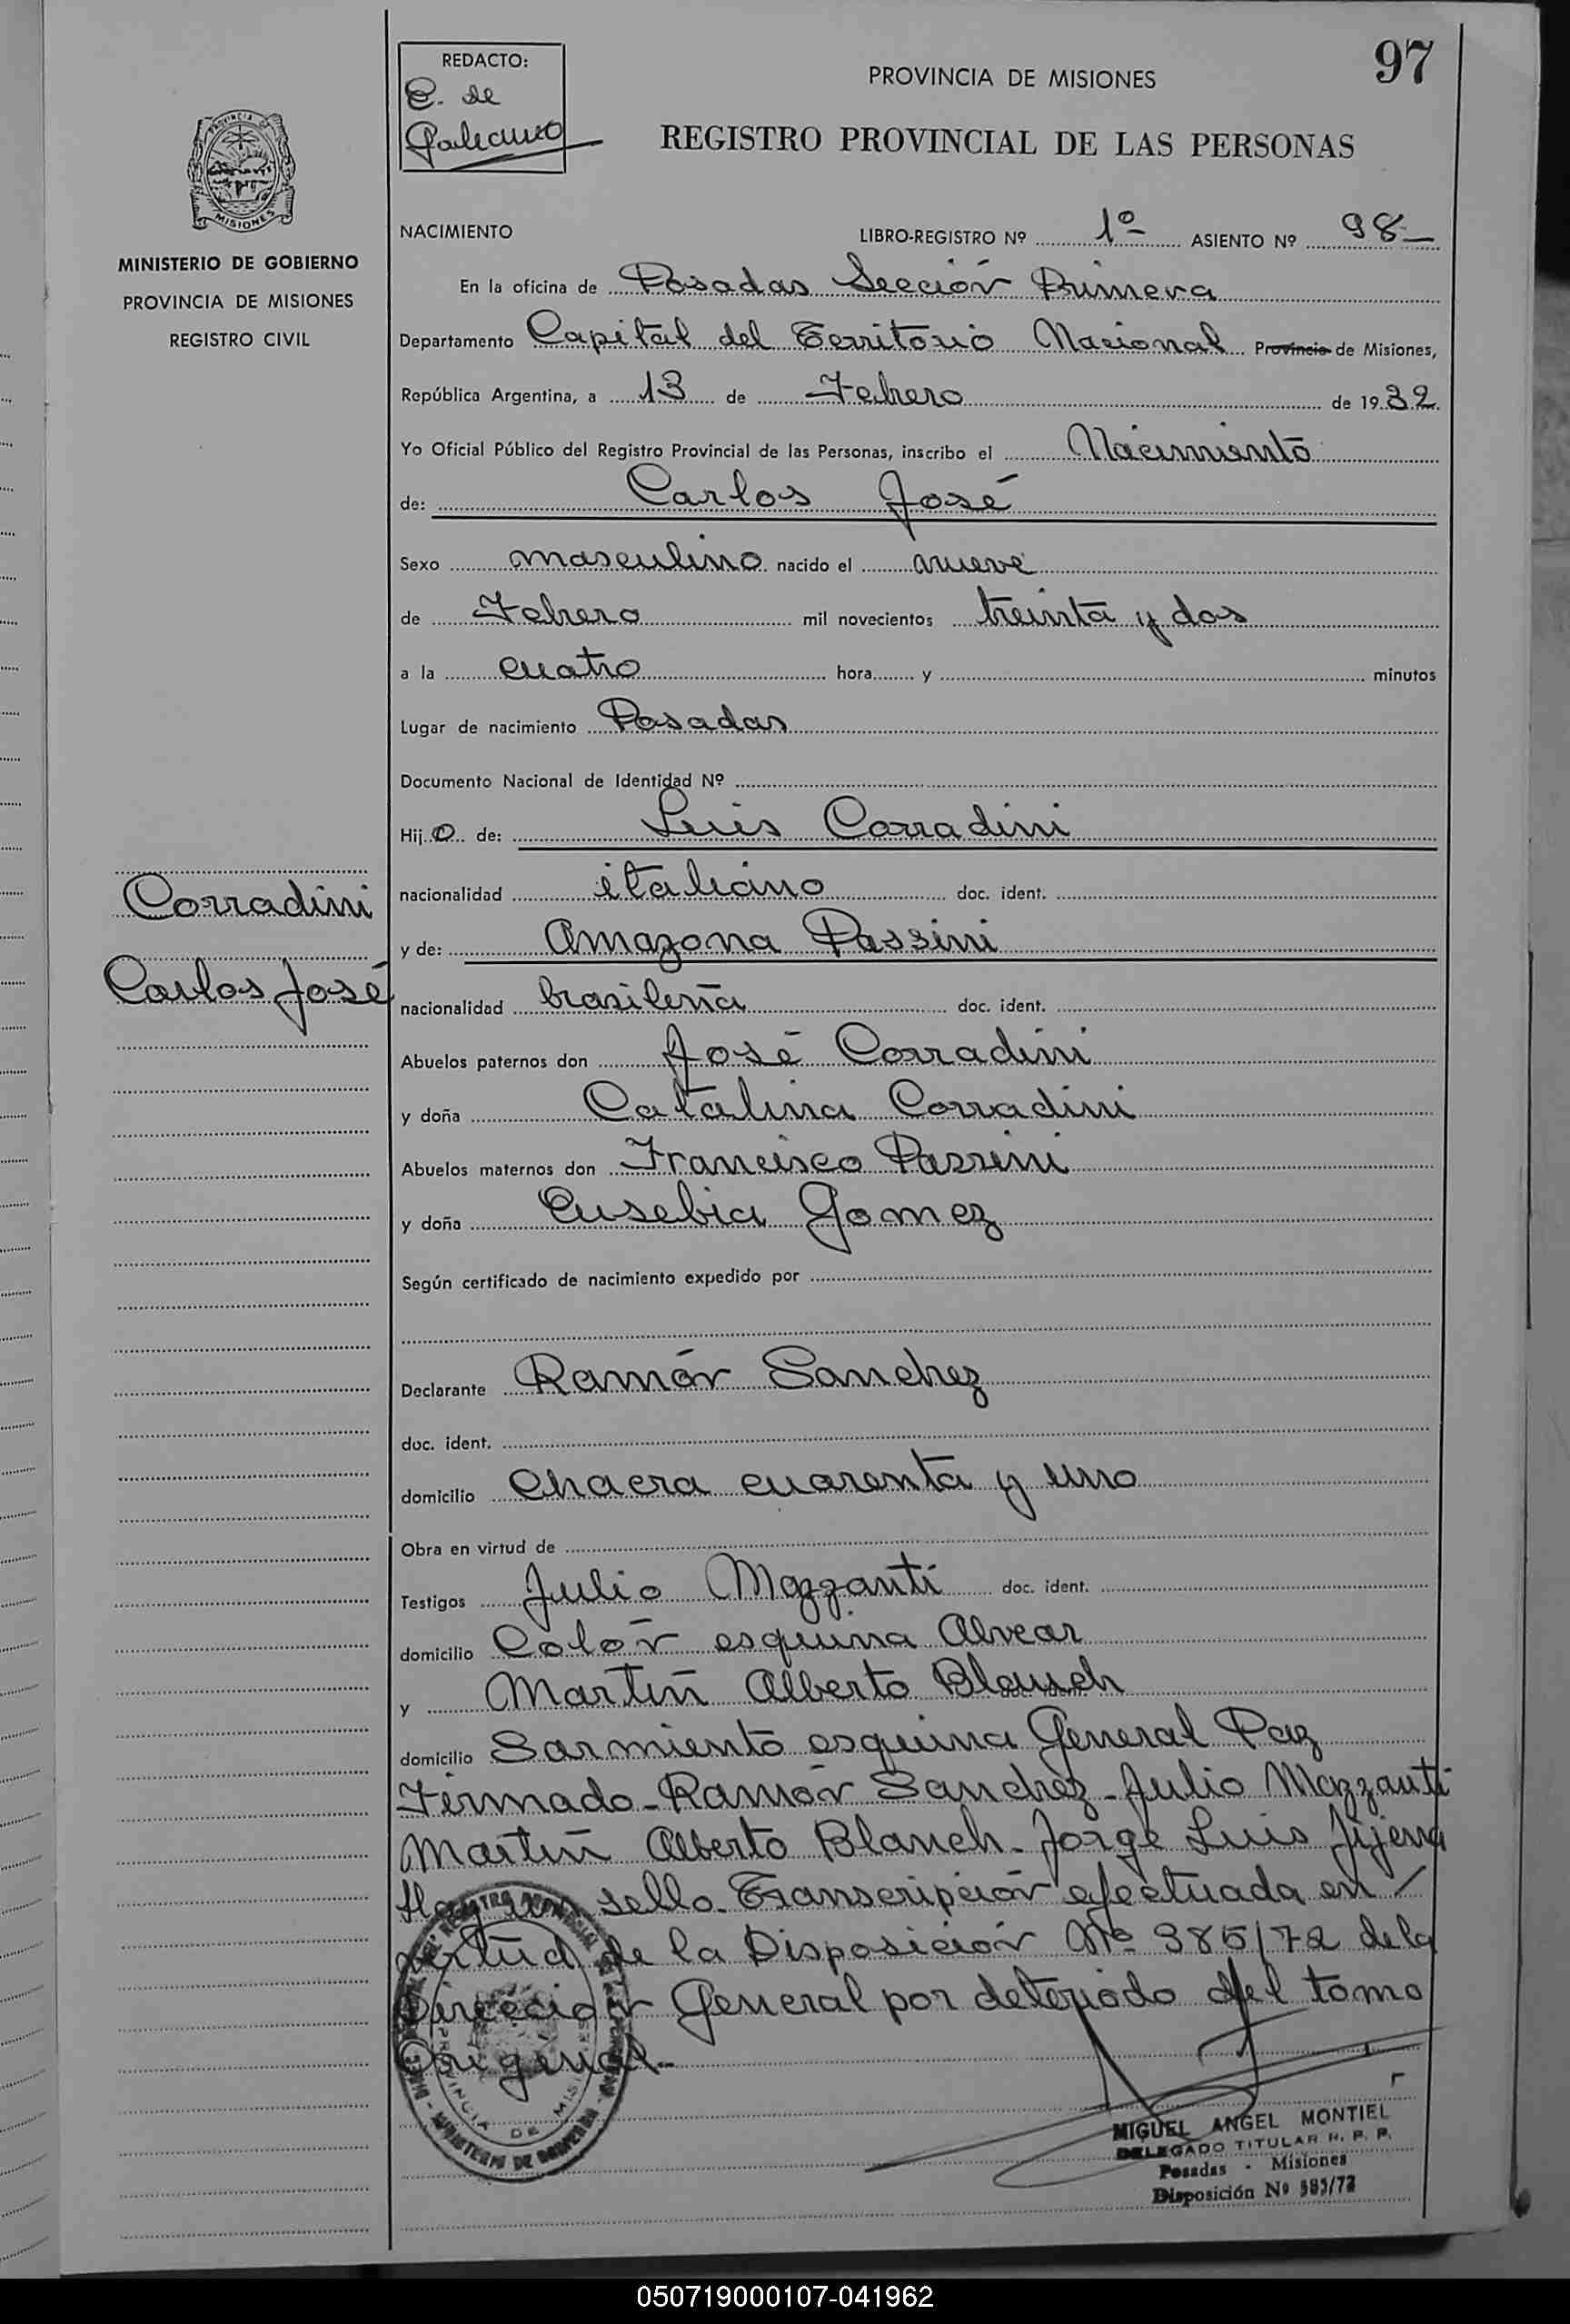 REDACTO:
E. de
Galeano
97
PROVINCIA DE MISIONES
REGISTRO PROVINCIAL DE LAS PERSONAS
PROVINCIA DE
MISIONES
MINISTERIO DE GOBIERNO
PROVINCIA DE MISIONES
REGISTRO CIVIL
NACIMIENTO LIBRO-REGISTRO Nº 1º ASIENTO Nº 98-
En la oficina de Posadas Sección Primera
Departamento Capital del Territorio Nacional Provincia de Misiones,
República Argentina, a 13 de Febrero de 1932.
Yo Oficial Público del Registro Provincial de las Personas, inscribo el Nacimiento
de: Carlos José
Sexo masculino nacido el nueve
de Febrero mil novecientos treinta y dos
a la cuatro hora y minutos
Lugar de nacimiento Posadas
Documento Nacional de Identidad Nº
Hijo de: Luis Corradini
nacionalidad italiano doc. ident.
y de: Amazona Passini
Corradini
Carlos José
nacionalidad brasileña doc. ident.
Abuelos paternos don José Corradini
y doña Catalina Corradini
Abuelos maternos don Francisco Passini
y doña Eusebia Gomez
Según certificado de nacimiento expedido por
Declarante Ramón Sanchez
doc. ident.
domicilio Chacra cuarenta y uno
Obra en virtud de
Testigos Julio Mazzanti doc. ident.
domicilio Colón esquina Alvear
y Martín Alberto Blanch
domicilio Sarmiento esquina General Paz
Firmado-Ramón Sanchez-Julio Mazzanti
Martín Alberto Blanch-Jorge Luis Jijena
Hay un sello. Transcripción efectuada en /
virtud de la Disposición Nº 385/72 de la
Dirección General por deteriodo del tomo
Original.-
PROVINCIA DE MISIONES
MIGUEL ANGEL MONTIEL
DELEGADO TITULAR R. P. P.
Posadas - Misiones
Disposición Nº 385/72
050719000107-041962